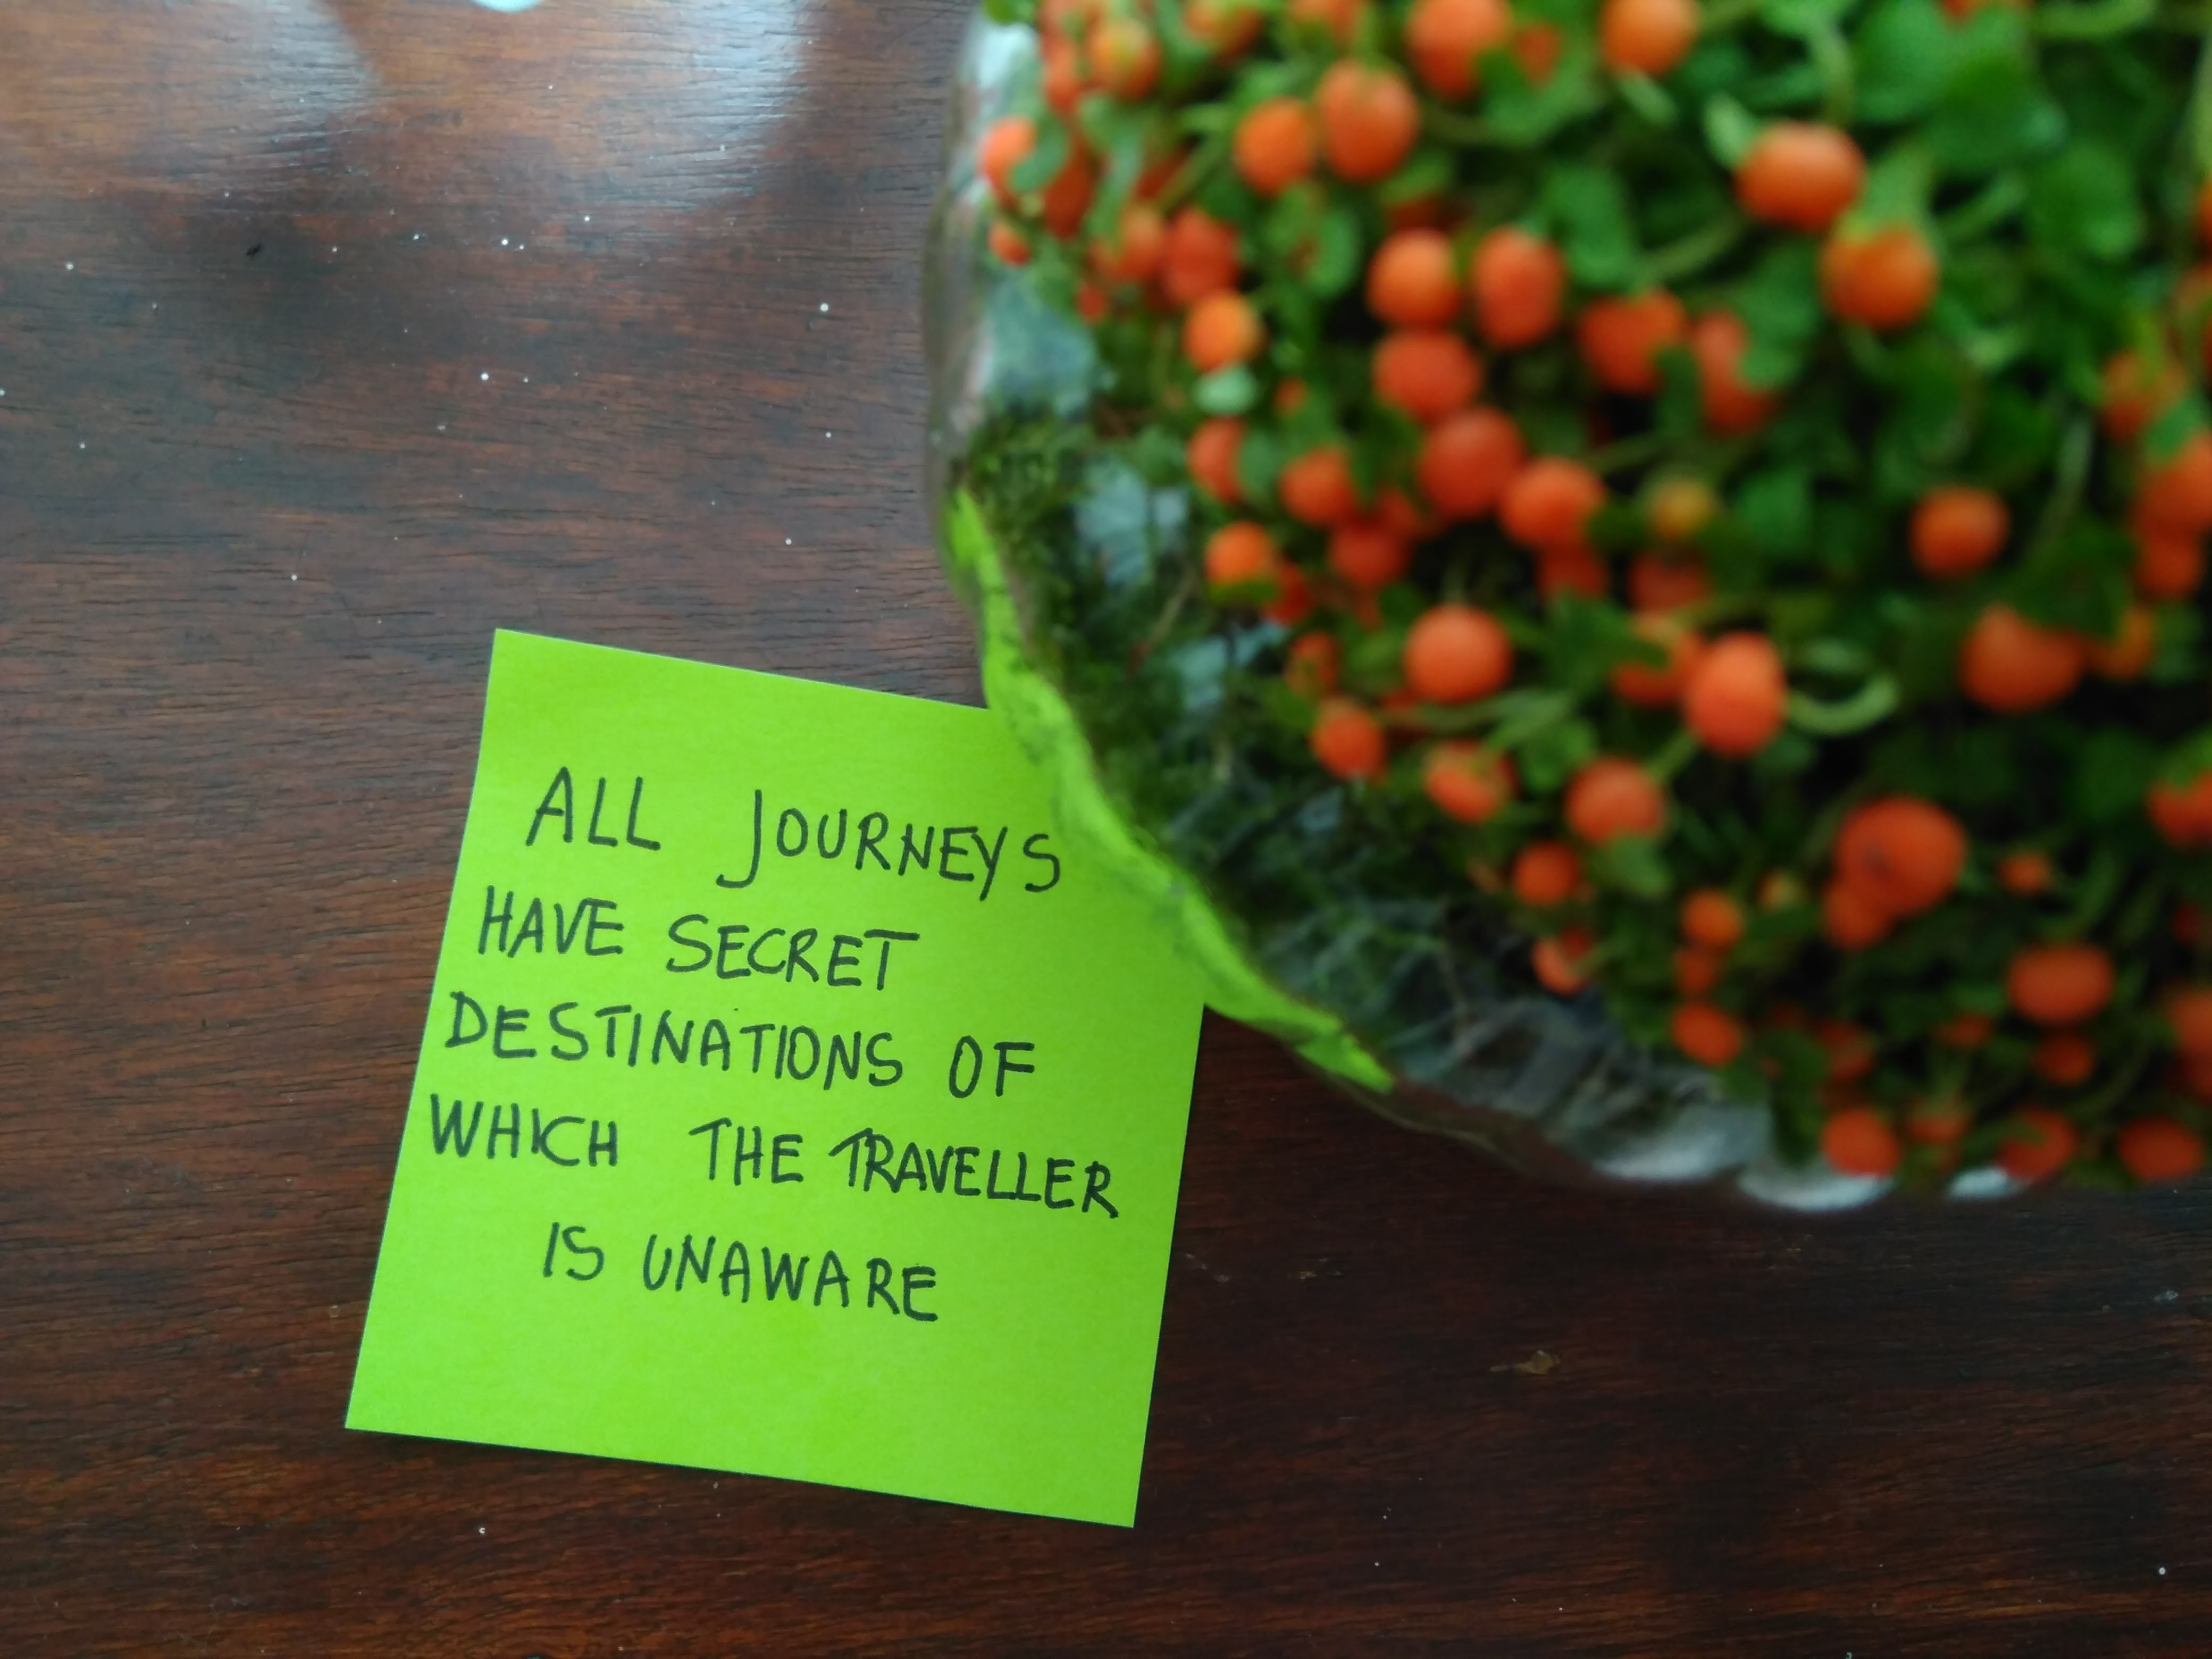 ALL JOURNEYS
HAVE SECRET
DESTINATIONS OF
WHICH THE TRAVELLER
IS UNAWARE